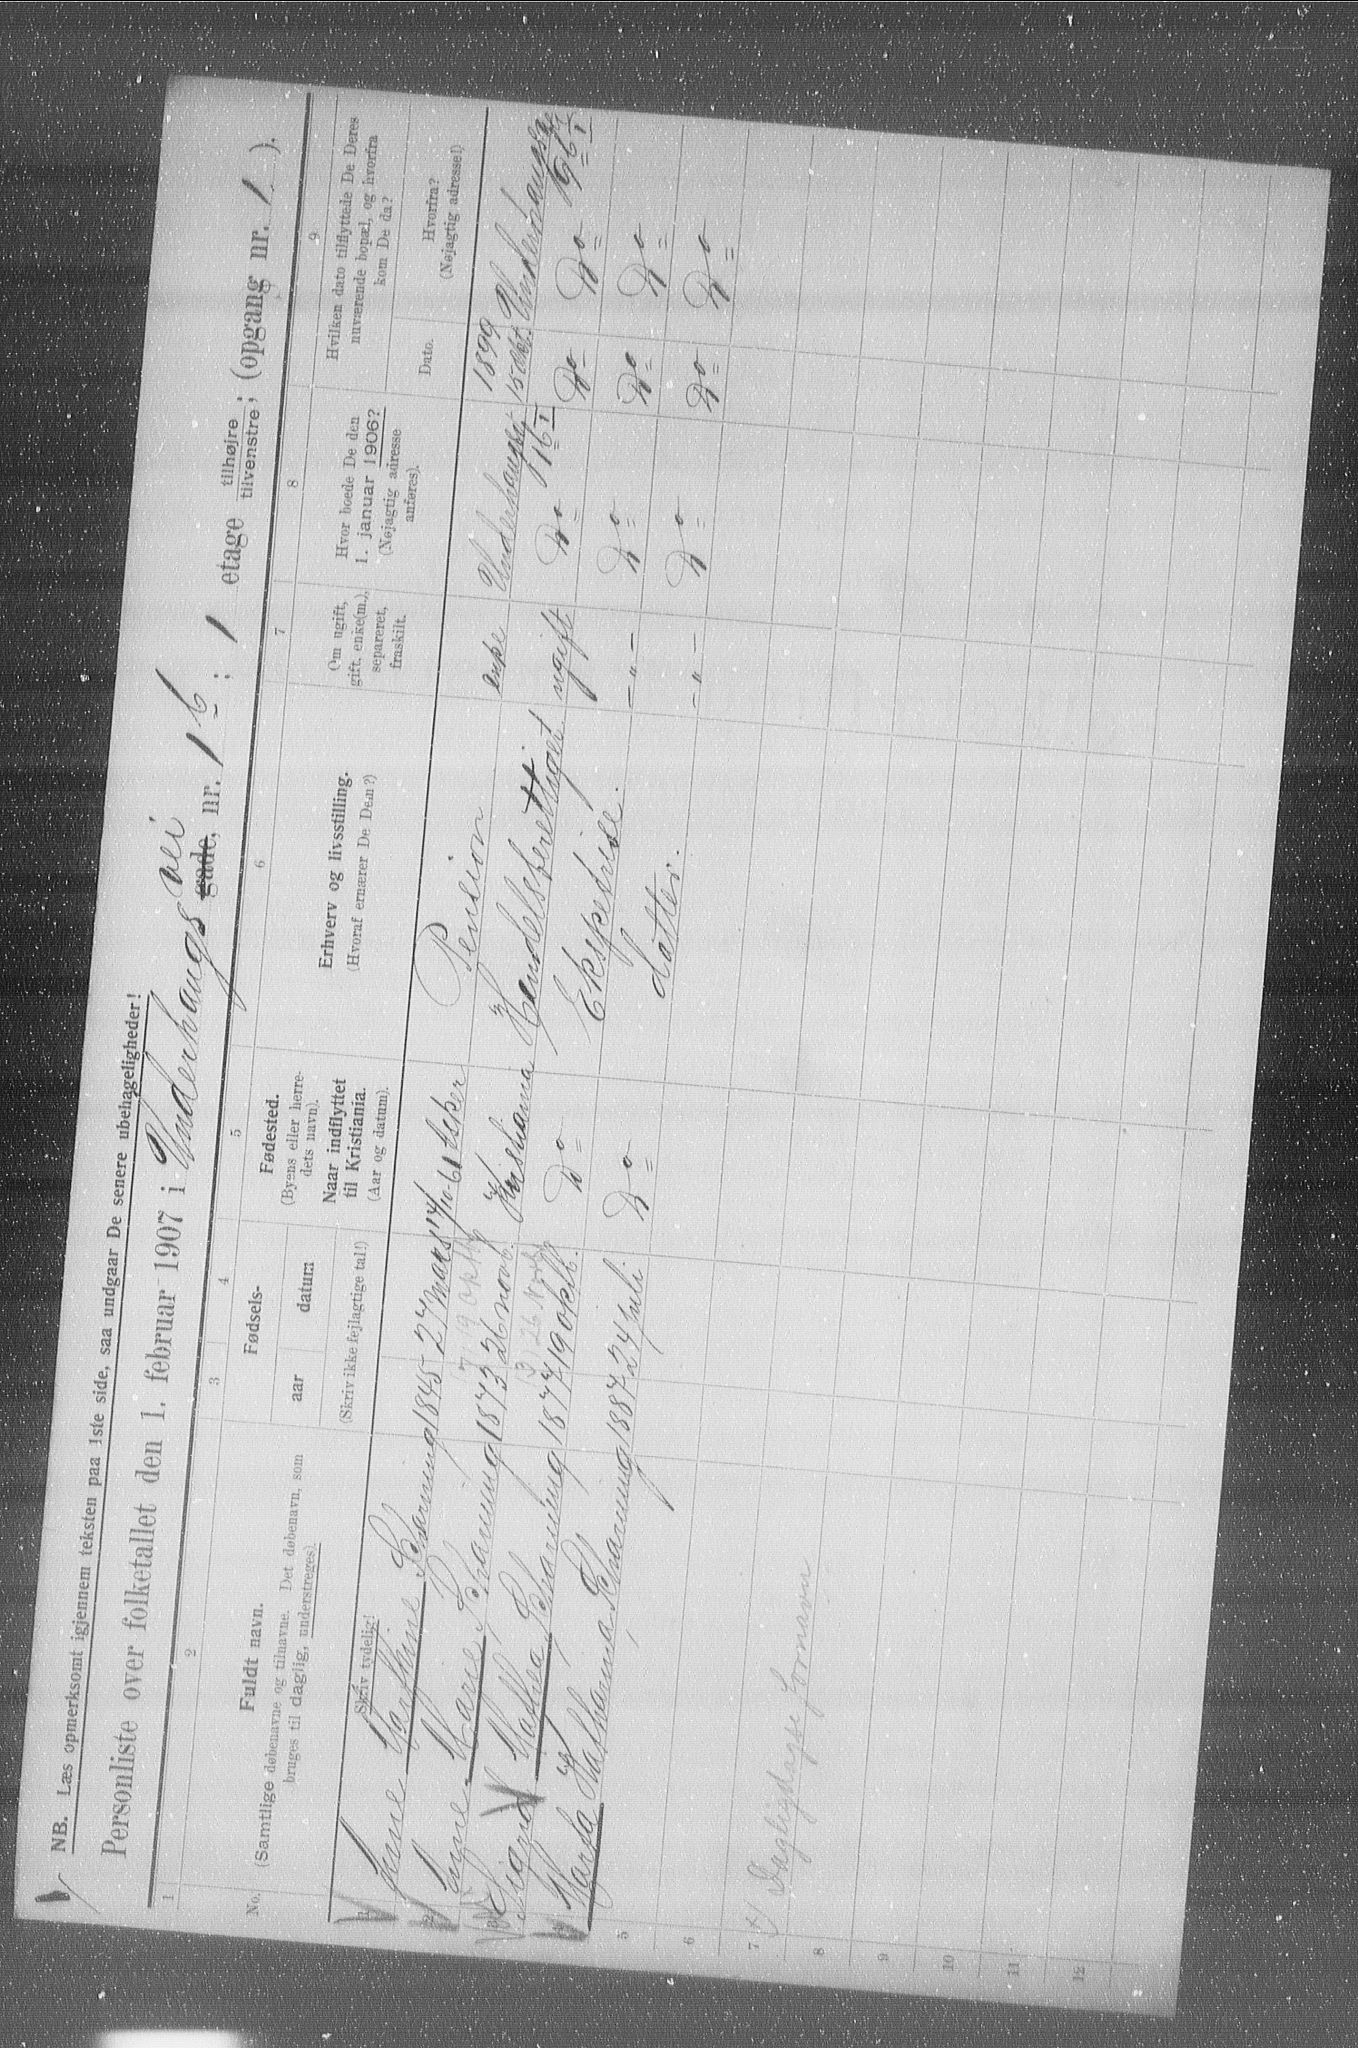 NB. Læs opmerksomt igjennem teksten paa 1ste side, saa undgaar De senere ubehageligheder!
Personliste over folketallet den 1. februar 1907 i Underhaugsvei gade, nr. 1 b; 1 etage tilhøjre tilvenstre; (opgang nr. 1).
1 2 3 4 5 6 7 8 9
No.
Fuldt navn.
(Samtlige døbenavne og tilnavne. Det døbenavn, som
bruges til daglig, understreges).
Skriv tydelig!
Fødsels-
aar datum
(Skriv ikke fejlagtige tal!)
Fødested.
(Byens eller herre-
dets navn).
Naar indflyttet
til Kristiania.
(Aar og datum).
Erhverv og livsstilling.
(Hvoraf ernærer De Dem?)
Om ugift,
gift, enke(m.),
separeret,
fraskilt.
Hvor boede De den
1. januar 1906?
(Nøjagtig adresse
anføres).
Hvilken dato tilflyttede De Deres
nuværende bopæl, og hvorfra
kom De da?
Dato.
Hvorfra?
(Nøjagtig adresse!)
1 Anne Karthine Scharning 1845 27 Mars 17/10-61 Asker Pension enke Underhaugsv 1 b 1 1899 15 Underhaugsv 1
2 Marie Scharning 1873 26 novb. Kristiania Handelsberettiget ugift Do Do Do
19 oktb
3 Signe Mathea Scharning 1877 19 oktb. Do Ekspedrise. -"- Do Do Do
26 Novb
4 Harda Katharina Scharning 1887 24 juli Do datter. -"- Do Do Do
5
6
7 x/ Dagligdagse fornavn
8
9
10
11
12